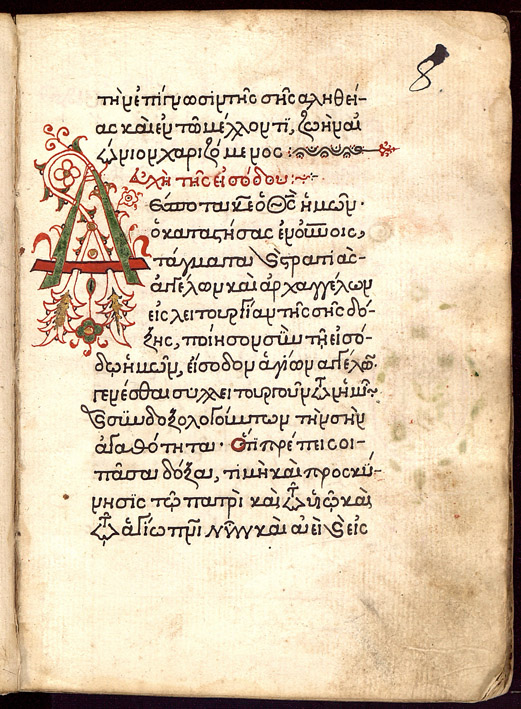 8
τὴν ἐπίγνωσιν τῆς σῆς ἀληθεί-
ας καὶ ἐν τῷ μέλλοντι, ζωὴν αἰ
ώνιον χαριζόμενος :
Εὐχὴ τῆς εἰσόδου :
Δέσποτα κε ὁ θς ἡμῶν ·
ὁ καταστήσας ἐν οὐνοις,
τάγματα κ στρατιὰς
ἀγγέλων καὶ ἀρχαγγέλων
εἰς λειτουργίαν τῆς σῆς δό-
ξης, ποίησον σὺν τῇ εἰσό-
δῳ ἡμῶν, εἴσοδον ἁγίων ἀγγέλων
γενέσθαι συλλειτουργούντων ἡμῖν
κ συνδοξολογούντων τὴν σὴν
ἀγαθότητα · Ὅτι πρέπει σοι
πᾶσα δόξα, τιμὴ καὶ προσκύ-
νησις τῷ πατρὶ καὶ τῷ υἱῷ καὶ
τῷ ἁγίῳ πνι νῦν καὶ ἀεὶ κ εἰς